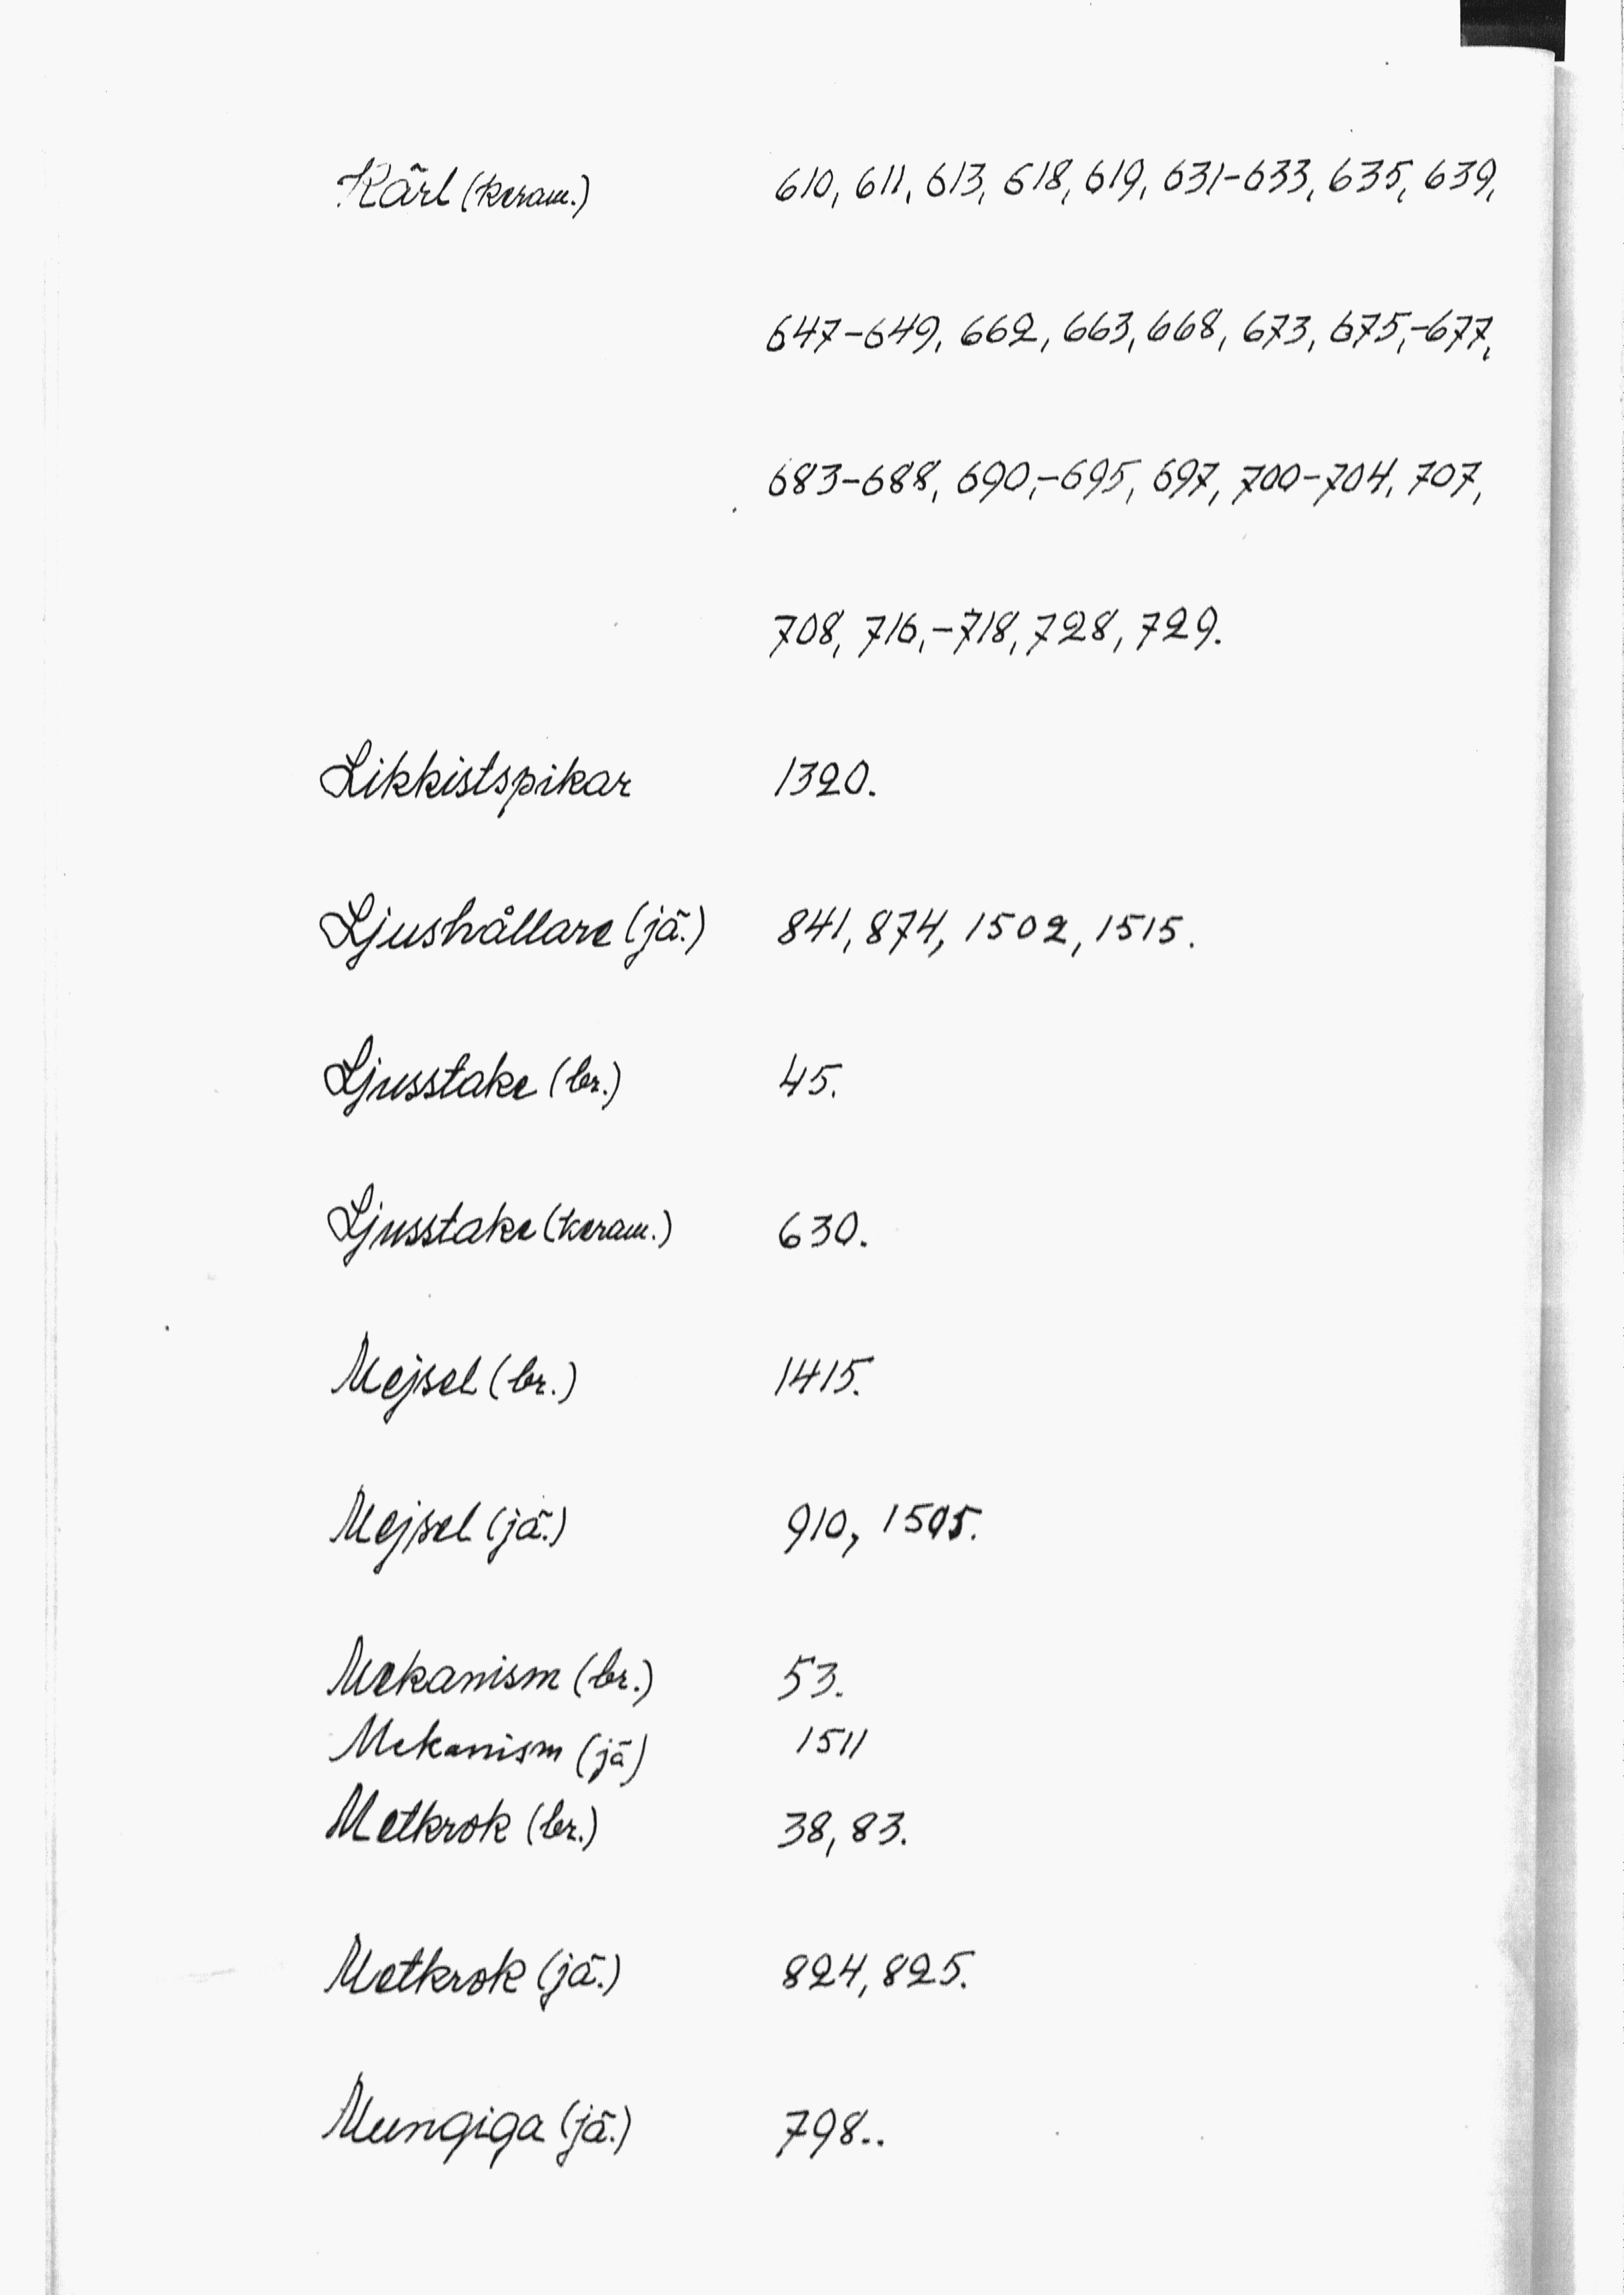 Kärl (keram.) 610, 611, 613, 618, 619, 631-633, 635, 639,
647-649, 662, 663, 668, 673, 675,-677,
683-688, 690,-695, 697, 700-704, 707,
708, 716,-718, 728, 729.
Likkistspikar 1320.
Ljushållare (jä.) 841, 874, 1502, 1515.
Ljusstake (br.) 45.
Ljusstake (keram.) 630.
Mejsel (br.) 1415.
Mejsel (jä.) 910, 1505.
Mekanism (br.) 53.
Mekanism (jä) 1511
Metkrok (br.) 38, 83.
Metkrok (jä.) 824, 825.
Mungiga (jä.) 798..